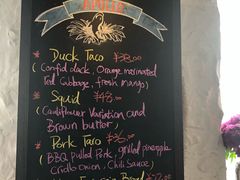 * Duck Taco ¥38.00
(Confid duck, Orange marinated
red Cabbage, fresh mango)
* Squid ¥48.00
(Cauliflower Variation and
Brown butter)
* Pork Taco ¥36.00
(BBQ Pulled Pork, grilled pineapple
Onion, Chili Sauce)